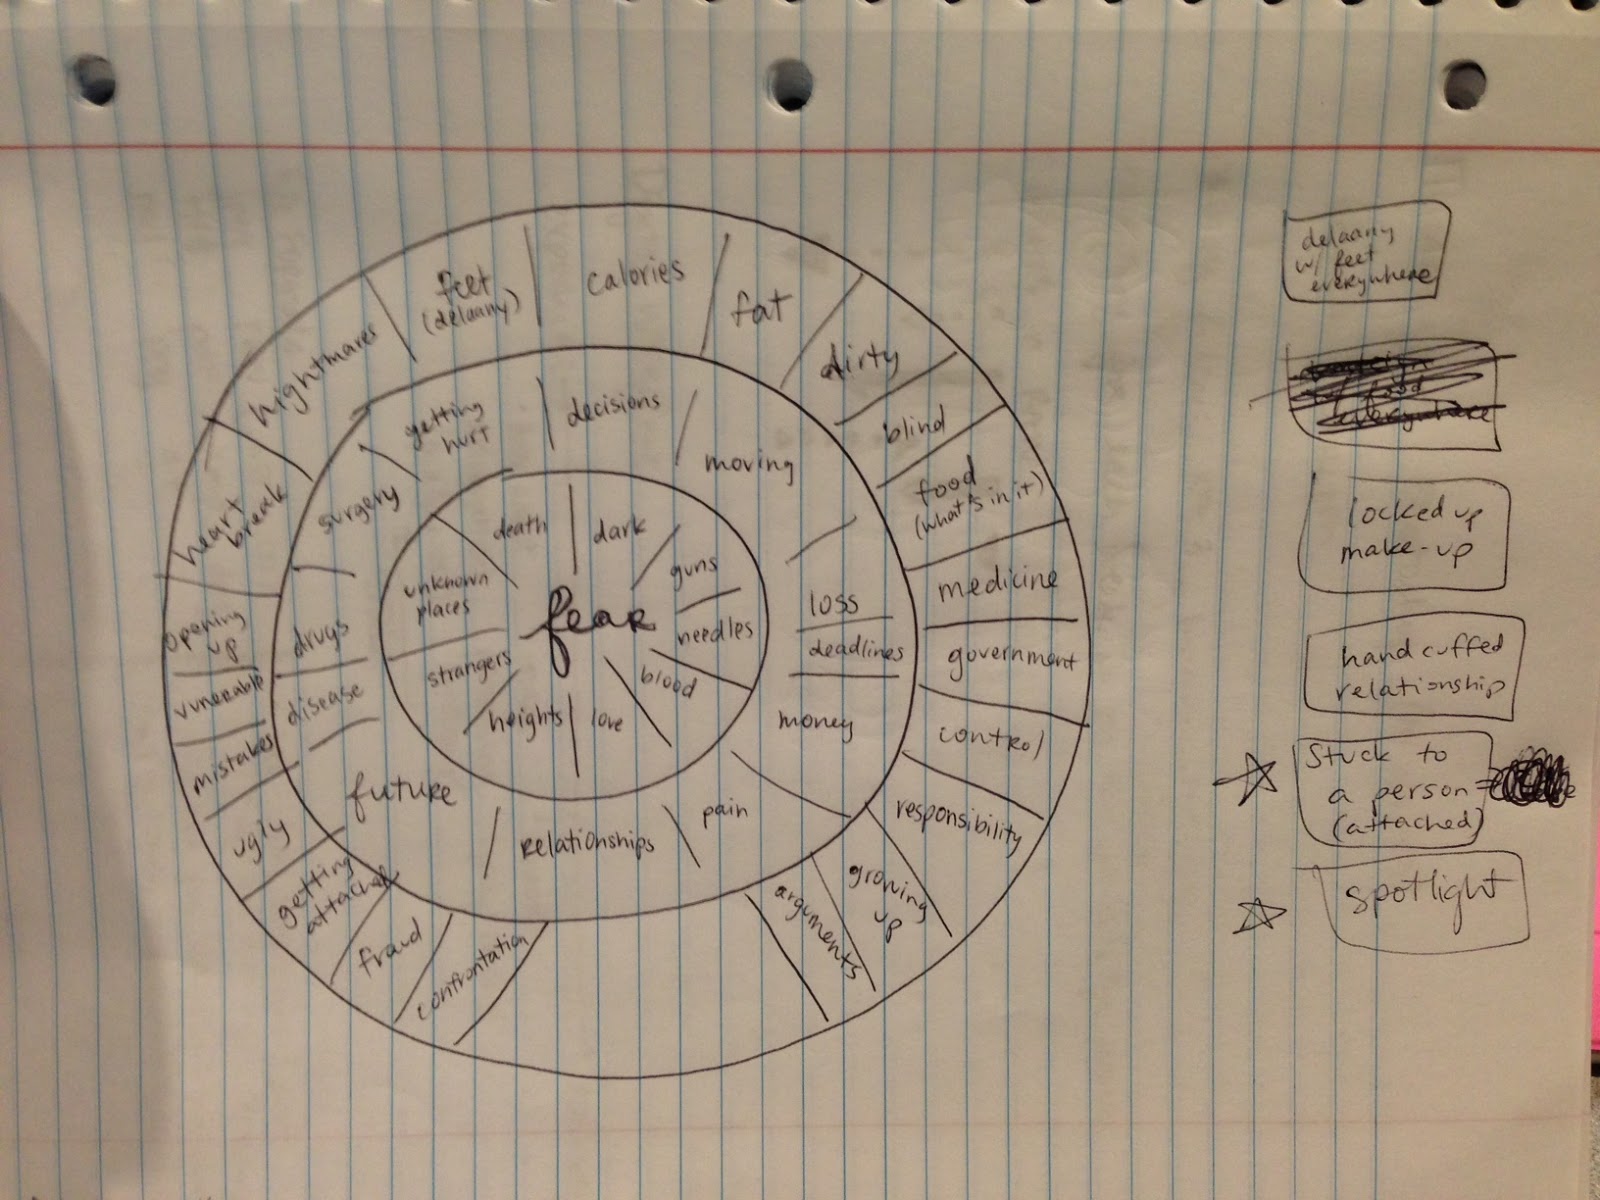 fear
death
dark
guns
needles
blood
love
heights
strangers
unknown
places
getting
hurt
decisions
moving
loss
deadlines
money
pain
relationships
future
disease
drugs
surgery
nightmares
feet
(delaany)
calories
fat
dirty
blind
food
(what's in it)
medicine
government
control
responsibility
growing
up
arguments
confrontation
fraud
getting
attached
ugly
mistakes
vunerable
opening
up
heart
break
delaany
w/ feet
everywhere
food
everywhere
locked up
make-up
handcuffed
relationship
Stuck to
a person
(attached)
spotlight